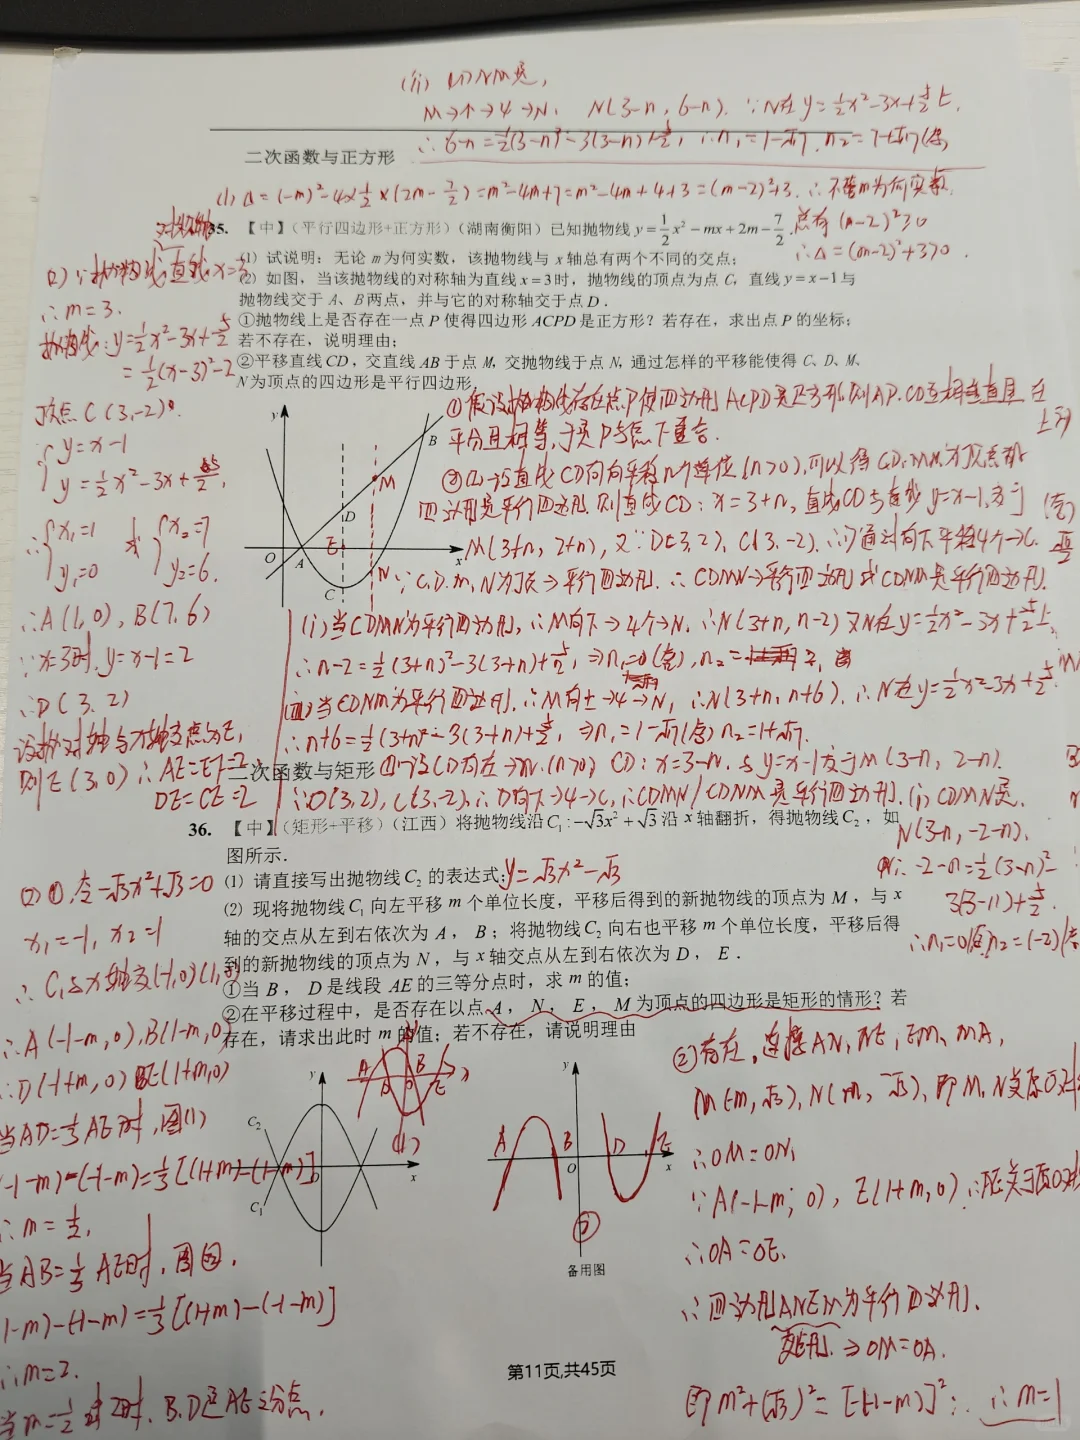 (ii) CDNM是,
M→↑→4→N, N(3-n, 6-n). ∵N在y=½x²-3x+5/2上,
∴6-n=½(3-n)²-3(3-n)+5/2, ∴n₁=1-√17, n₂=1+√17(舍)
二次函数与正方形
(1) Δ=(-m)²-4×½×(2m-7/2)=m²-4m+7=m²-4m+4+3=(m-2)²+3. ∴不管m为何实数,
总有(m-2)²≥0
∴Δ=(m-2)²+3>0.
35. 【中】(平行四边形+正方形)(湖南衡阳)已知抛物线y=½x²-mx+2m-7/2.
(1) 试说明:无论m为何实数,该抛物线与x轴总有两个不同的交点;
(2) 如图,当该抛物线的对称轴为直线x=3时,抛物线的顶点为点C,直线y=x-1与
抛物线交于A、B两点,并与它的对称轴交于点D.
①抛物线上是否存在一点P使得四边形ACPD是正方形?若存在,求出点P的坐标;
若不存在,说明理由;
②平移直线CD,交直线AB于点M,交抛物线于点N,通过怎样的平移能使得C、D、M、
N为顶点的四边形是平行四边形.
对称轴
(2) ∵抛物线,直线x=3
∴m=3.
抛物线:y=½x²-3x+5/2
=½(x-3)²-2
顶点C(3,-2).
{y=x-1
y=½x²-3x+5/2,
∴{x₁=1 或 {x₂=7
y₁=0 y₂=6.
∴A(1,0), B(7,6)
∵x=3时, y=x-1=2
∴D(3,2)
设抛对轴与x轴交点为E,
则E(3,0) ∴AE=
DE=CE=2
y
B
M
D
O
A
E
x
N
C
①假设抛物线存在点P使四边形ACPD是正方形,则AP、CD互相垂直且
平分且相等,于是P与点下重合.
②(1)设直线CD向右平移n个单位(n>0),可以得CD、MN为顶点的
四边形是平行四边形,则直线CD:x=3+n, 直线CD与直线y=x-1交于
M(3+n, 2+n), 又∵D(3,2), C(3,-2), ∴可通过向下平移4个→C.
∵C.D.M,N为顶点→平行四边形. ∴CDMN→平行四边形或CDNM是平行四边形.
(i)当CDMN为平行四边形, ∴M向下→4个→N, ∴N(3+n, n-2) 又N在y=½x²-3x+5/2上,
∴n-2=½(3+n)²-3(3+n)+5/2, ⇒n₁=0(舍), n₂=2,
(ii)当CDNM为平行四边形. ∴M向上→4→N, ∴N(3+n, n+6). ∴N在y=½x²-3x+5/2.
∴n+6=½(3+n)²-3(3+n)+5/2, ⇒n₁=1-√17(舍) n₂=1+√17.
二次函数与矩形 ②设CD向左→n.(n>0) CD:x=3-n. 与y=x-1交于M(3-n, 2-n).
∵D(3,2), C(3,-2), ∴D向下→4→C, ∴CDMN/CDNM是平行四边形. (i) CDMN是,
N(3-n, -2-n),
∴-2-n=½(3-n)²
3(3-n)+5/2.
∴n₁=0(舍) n₂=(-2)(舍
36. 【中】(矩形+平移)(江西)将抛物线沿C₁:-√3x²+√3沿x轴翻折,得抛物线C₂,如
图所示.
(1) 请直接写出抛物线C₂的表达式; y=√3x²-√3
(2) 现将抛物线C₁向左平移m个单位长度,平移后得到的新抛物线的顶点为M,与x
轴的交点从左到右依次为A,B;将抛物线C₂向右也平移m个单位长度,平移后得
到的新抛物线的顶点为N,与x轴交点从左到右依次为D,E.
①当B,D是线段AE的三等分点时,求m的值;
②在平移过程中,是否存在以点A,N,E,M为顶点的四边形是矩形的情形?若
存在,请求出此时m的值;若不存在,请说明理由
(2) ①,令-√3x²+√3=0
x₁=-1, x₂=1
∴C₁与x轴交(-1,0)(1,0)
∴A(-1-m,0), B(1-m,0)
∴D(-1+m,0) E(1+m,0)
当AD=⅓AE时,图(1)
(-1-m)=⅓[(1+m)-(-1-m)]
∴m=½,
当AB=⅓AE时,图②.
1-m)-(-1-m)=⅓[(1+m)-(-1-m)]
∴m=2.
当m=½或2时, B.D是AE三分点.
A
B
D
E
x
(1)
y
C₂
C₁
O
x
y
A
B
O
D
E
x
②
备用图
②存在,连接AN, NE, EM, MA,
M(-m, √3), N(m, -√3), 即M, N关原O对
∴OM=ON,
∵A(-1-m, 0), E(1+m, 0) ∴A,E关于原O对
∴OA=OE,
∴四边形ANEM为平行四边形.
矩形. ⇒OM=OA.
即m²+(√3)²=[-(-1-m)]², ∴m=1
第11页,共45页